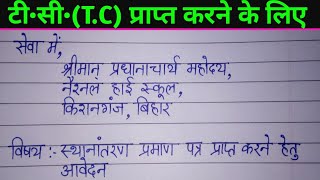 टी·सी·(T.C) प्राप्त करने के लिए
सेवा में,
श्रीमान प्रधानाचार्य महोदय,
नेशनल हाई स्कूल,
किशनगंज, बिहार
विषय :- स्थानांतरण प्रमाण पत्र प्राप्त करने हेतु
आवेदन